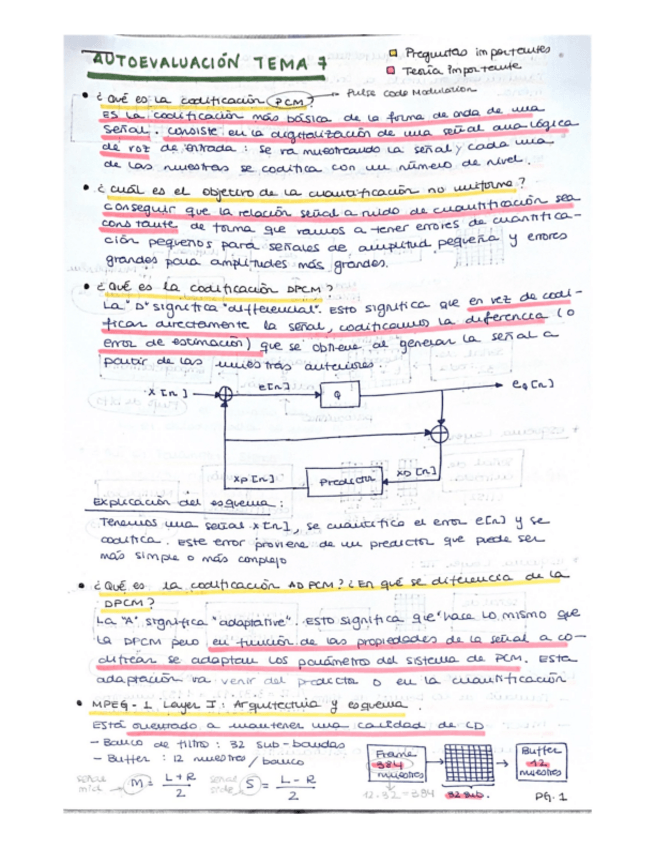 AUTOEVALUACIÓN TEMA 7
Preguntas importantes
Teoría importante
• ¿Qué es la codificación PCM? → Pulse Code Modulation
Es la codificación más básica de la forma de onda de una
señal. Consiste en la digitalización de una señal analógica
de voz de entrada: se va muestreando la señal y cada una
de las muestras se codifica con un número de nivel.
• ¿Cuál es el objetivo de la cuantificación no uniforme?
Conseguir que la relación señal a ruido de cuantificación sea
constante de forma que vamos a tener errores de cuantifica-
ción pequeños para señales de amplitud pequeña y errores
grandes para amplitudes más grandes.
• ¿Qué es la codificación DPCM?
La "D" significa "differencial". Esto significa que en vez de codi-
ficar directamente la señal, codificamos la diferencia (o
error de estimación) que se obtiene al generar la señal a
partir de las muestras anteriores.
x[n]
e[n]
Q
eq[n]
xp[n]
Predictor
xo[n]
Explicación del esquema:
Tenemos una señal x[n], se cuantifica el error e[n] y se
codifica. Este error proviene de un predictor que puede ser
más simple o más complejo
• ¿Qué es la codificación ADPCM? ¿En qué se diferencia de la
DPCM?
La "A" significa "adaptative". Esto significa que hace lo mismo que
la DPCM pero en función de las propiedades de la señal a co-
dificar se adaptan los parámetros del sistema de PCM. Esta
adaptación va venir del predictor o en la cuantificación
• MPEG-1 Layer I: Arquitectura y esquema.
Está orientado a mantener una calidad de CD
- Banco de filtro: 32 sub-bandas
- Buffer: 12 muestras/banco
señal mid → M = L+R / 2
señal side → S = L-R / 2
Frame
384
muestras
12·32 = 384
32 sub.
Buffer
12
muestras
PG. 1